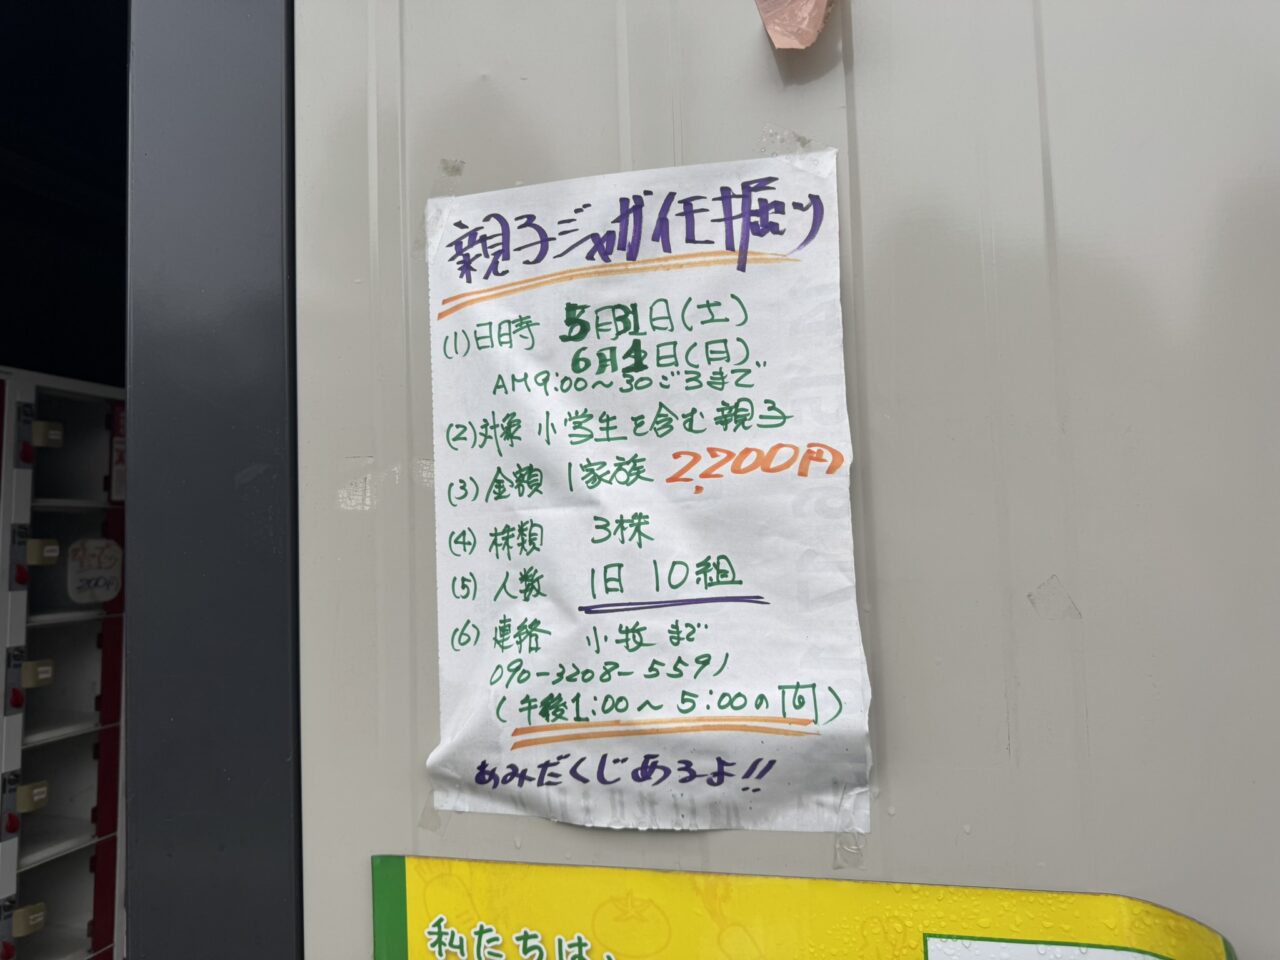 親子ジャガイモ掘り
(1)日時 5月31日(土)
6月1日(日)
AM9:00～30ごろまで
(2)対象 小学生を含む親子
(3)金額 1家族 2,200円
(4)株類 3株
(5)人数 1日 10組
(6)連絡 小牧まで
090-3208-5591
(午後1:00～5:00の間)
あみだくじあるよ!!
200円
私たちは、